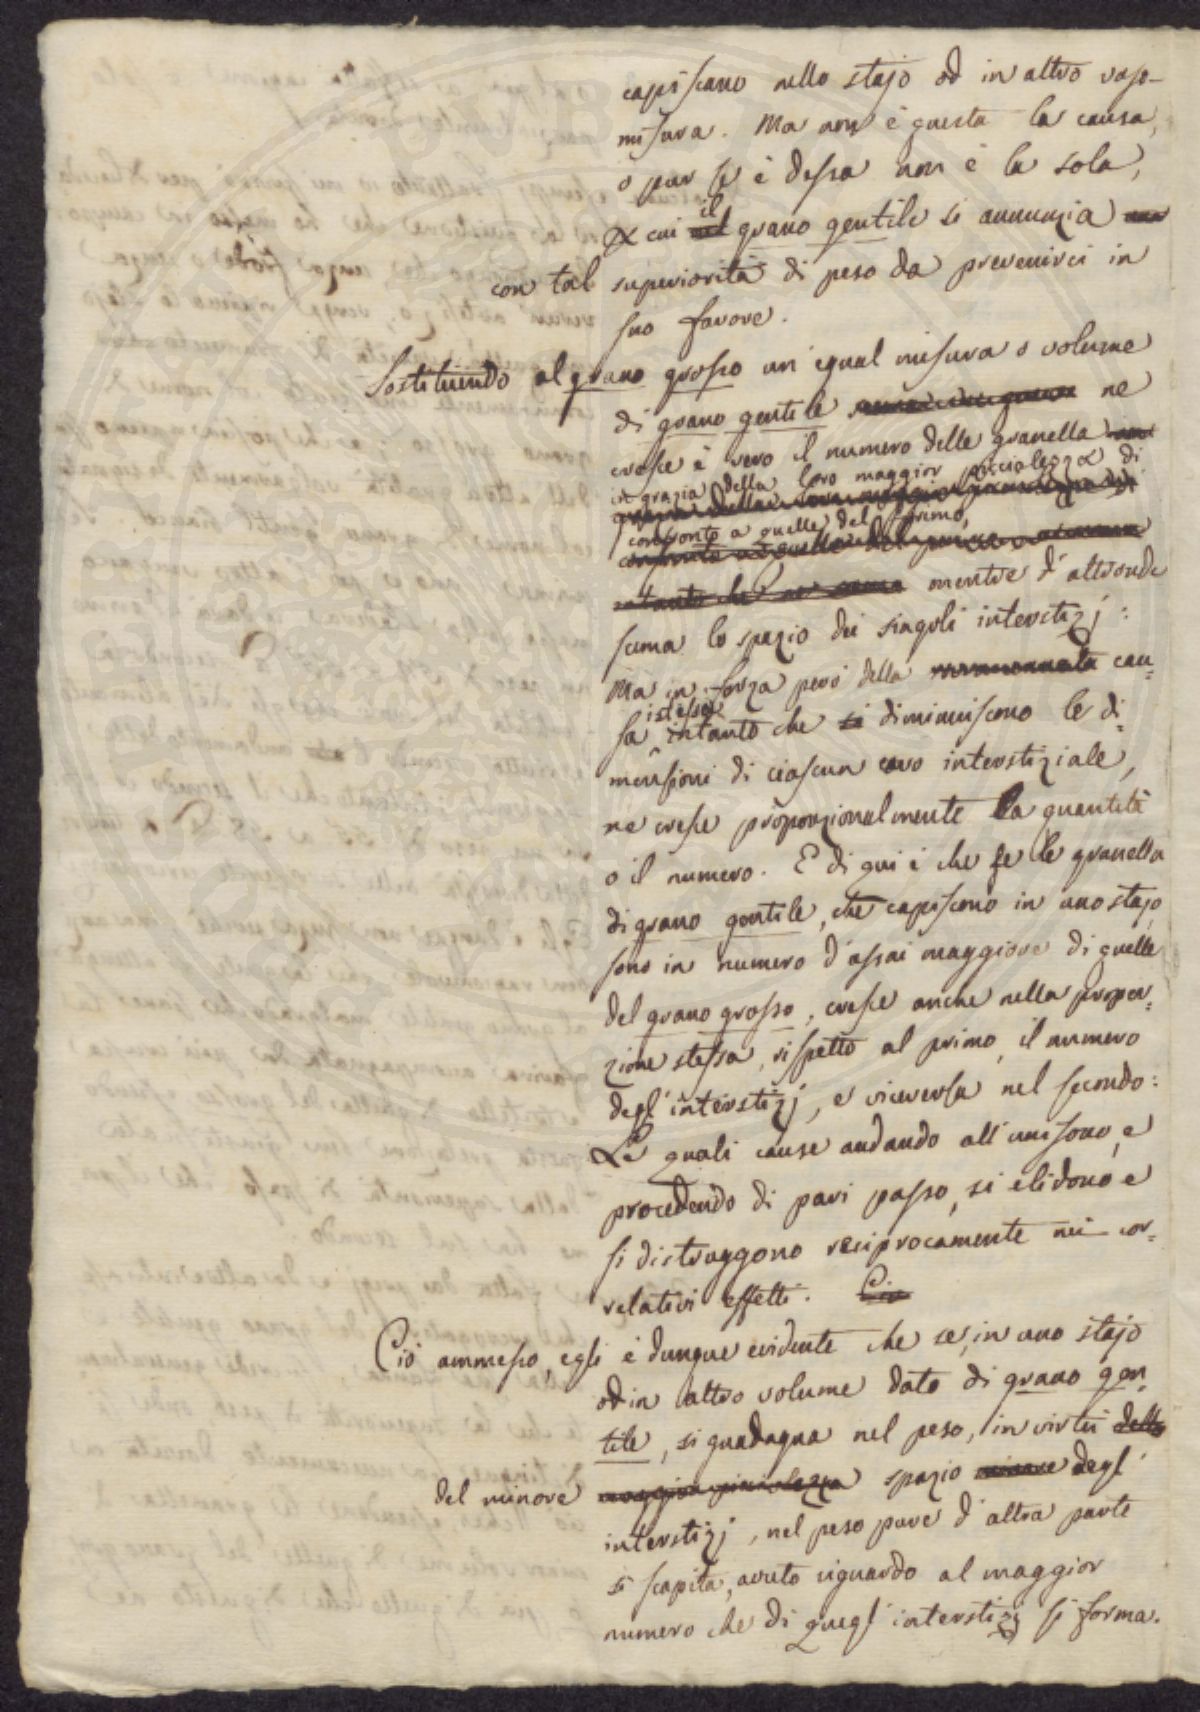 capiscano nello stajo od in altro vaso-
misura. Ma non è questa la causa,
o pur se è dessa non è la sola,
per cui il grano gentile si annunzia
con tal superiorità di peso da prevenirci in
suo favore.
Sostituendo al grano grosso un'egual misura o volume
di grano gentile ne
cresce è vero il numero delle granella
in grazia della loro maggior picciolezza di
confronto a quelle del primo,
mentre d'altronde
scema lo spazio dei singoli interstizj:
Ma in forza però della cau=
sa istessa intanto che si diminuiscono le di=
mensioni di ciascun cavo interstiziale,
ne cresce proporzionalmente la quantità
o il numero. E di qui è che se le granella
di grano gentile, che capiscono in uno stajo,
sono in numero d'assai maggiore di quelle
del grano grosso, cresce anche nella propor=
zione stessa, rispetto al primo, il numero
degl'interstizj, e viceversa nel secondo:
Le quali cause andando all'unisono, e
procedendo di pari passo, si elidono e
si distruggono reciprocamente nei cor=
relativi effetti. Ciò
Ciò ammesso, egli è dunque evidente che se, in uno stajo
od in altro volume dato di grano gen=
tile, si guadagna nel peso, in virtù della
del minore maggior picciolezza spazio minore degl'
interstizj, nel peso pure d'altra parte
si scapita, avuto riguardo al maggior
numero che di quegl'interstizj si forma.